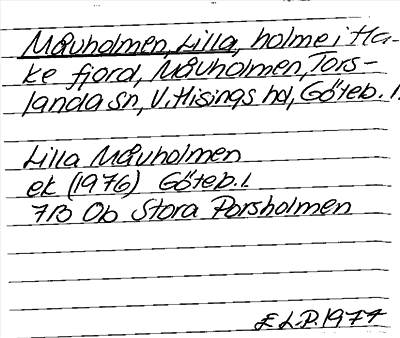 Måvholmen, Lilla, holme i Ha-
ke fjord, Måvholmen, Tors-
landa sn, V. Hisings hd, Göteb. l.
Lilla Måvholmen
ek (1976) Göteb. l.
7B Ob Stora Porsholmen
E L.P. 1977